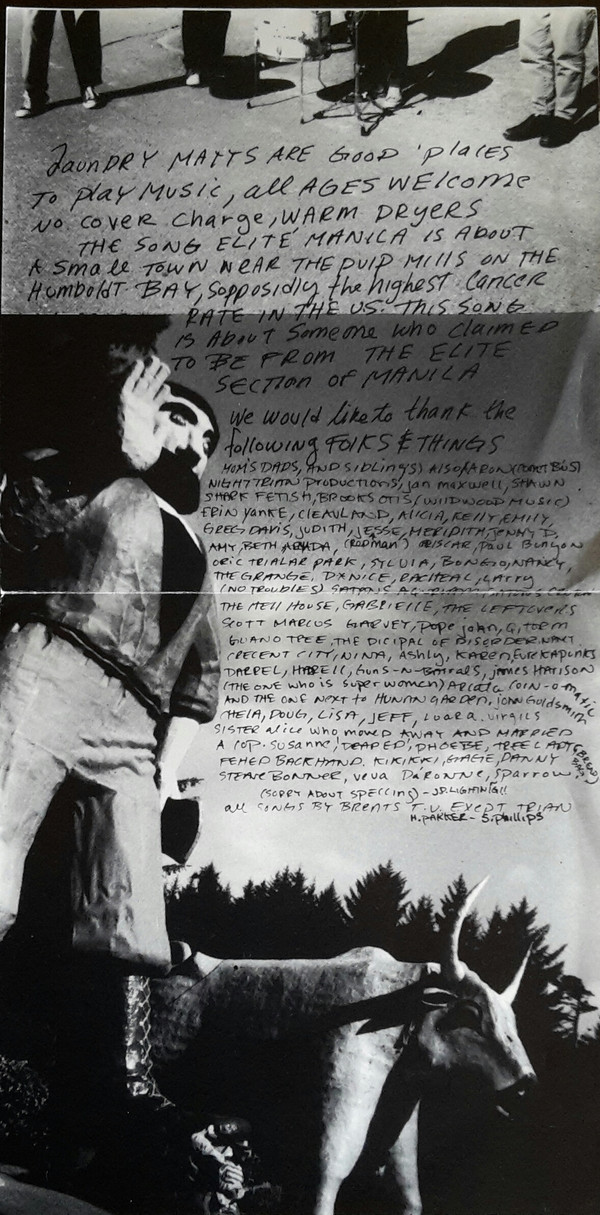 LaunDRY MATTS ARE GOOD places
To play Music, all AGES WElcome
NO COVER Charge, WARM DRyERS
THE SONG ELITE MANILA IS ABOUT
A Small TOWN NEAR THE PULP MIlls ON THE
HumbolDT BAY, Sopposidly the highest CANCER
RATE IN THE US. THIS SONG
IS ABouT Someone who claimED
TO BE FROM THE ELITE
SECTION OF MANILA
We would like to thank the
following FOLKS & THINGS
MOM'S DADS, AND SIBLING'S) AlSO AARON (COMET BUS)
NIGHT TRIAN PRODUCTIONS, Jan maxwell, SHAWN
SHARK FETISH, BROOKS OTIS (WILDWOOD MUSIC)
ERIN YANKE, CLEAVLAND, ALICIA, KELLY, EMILY,
GREG DAVIS, JUDITH, JESSE, MERIDITH, JENNY D.
AMY, BETH, (RODMAN) PAUL
ORIC TRIALAR PARK, SYLVIA, BONGO, NANCY,
THE GRANGE, DXNICE, RACHEAL, LARRY
(NO TROUBLES) SATANS
THE HELL HOUSE, GABRIELLE, THE LEFTOVERS
SCOTT MARCUS GARVEY, Pope john, Q, TORM
GUANO TREE, THE DICIPAL OF DISORDER, NAKT,
CRECENT CITY, NINA, Ashly, KAREN, EUREKAPUNKS
DARREL, HARELL, Guns-N-, james HARISON
(THE ONE who is super women) ARCATA COIN-O-MATIC
AND THE ONE NEXT TO HUNAN GARDEN, JOHN GOLDSMITH
SHEIA, DOUG, LISA, JEFF, LUARA. VIRGILS
SISTER Alice who moved AWAY AND MARRIED
A COP. SUSANNE, DEAPED, PHOEBE, TREE LADY
FEHED BACKHAND. KIKIKKI, GRAGIE, DANNY
STEAVE BONNER, VEVA DARONNE, SPARROW
(SORRY ABOUT SPELLING) - JR. LIGHTNING!!
all SONGS BY BREATS T.V. EXCEPT TRIAN
H. PARKER - S. Phillips